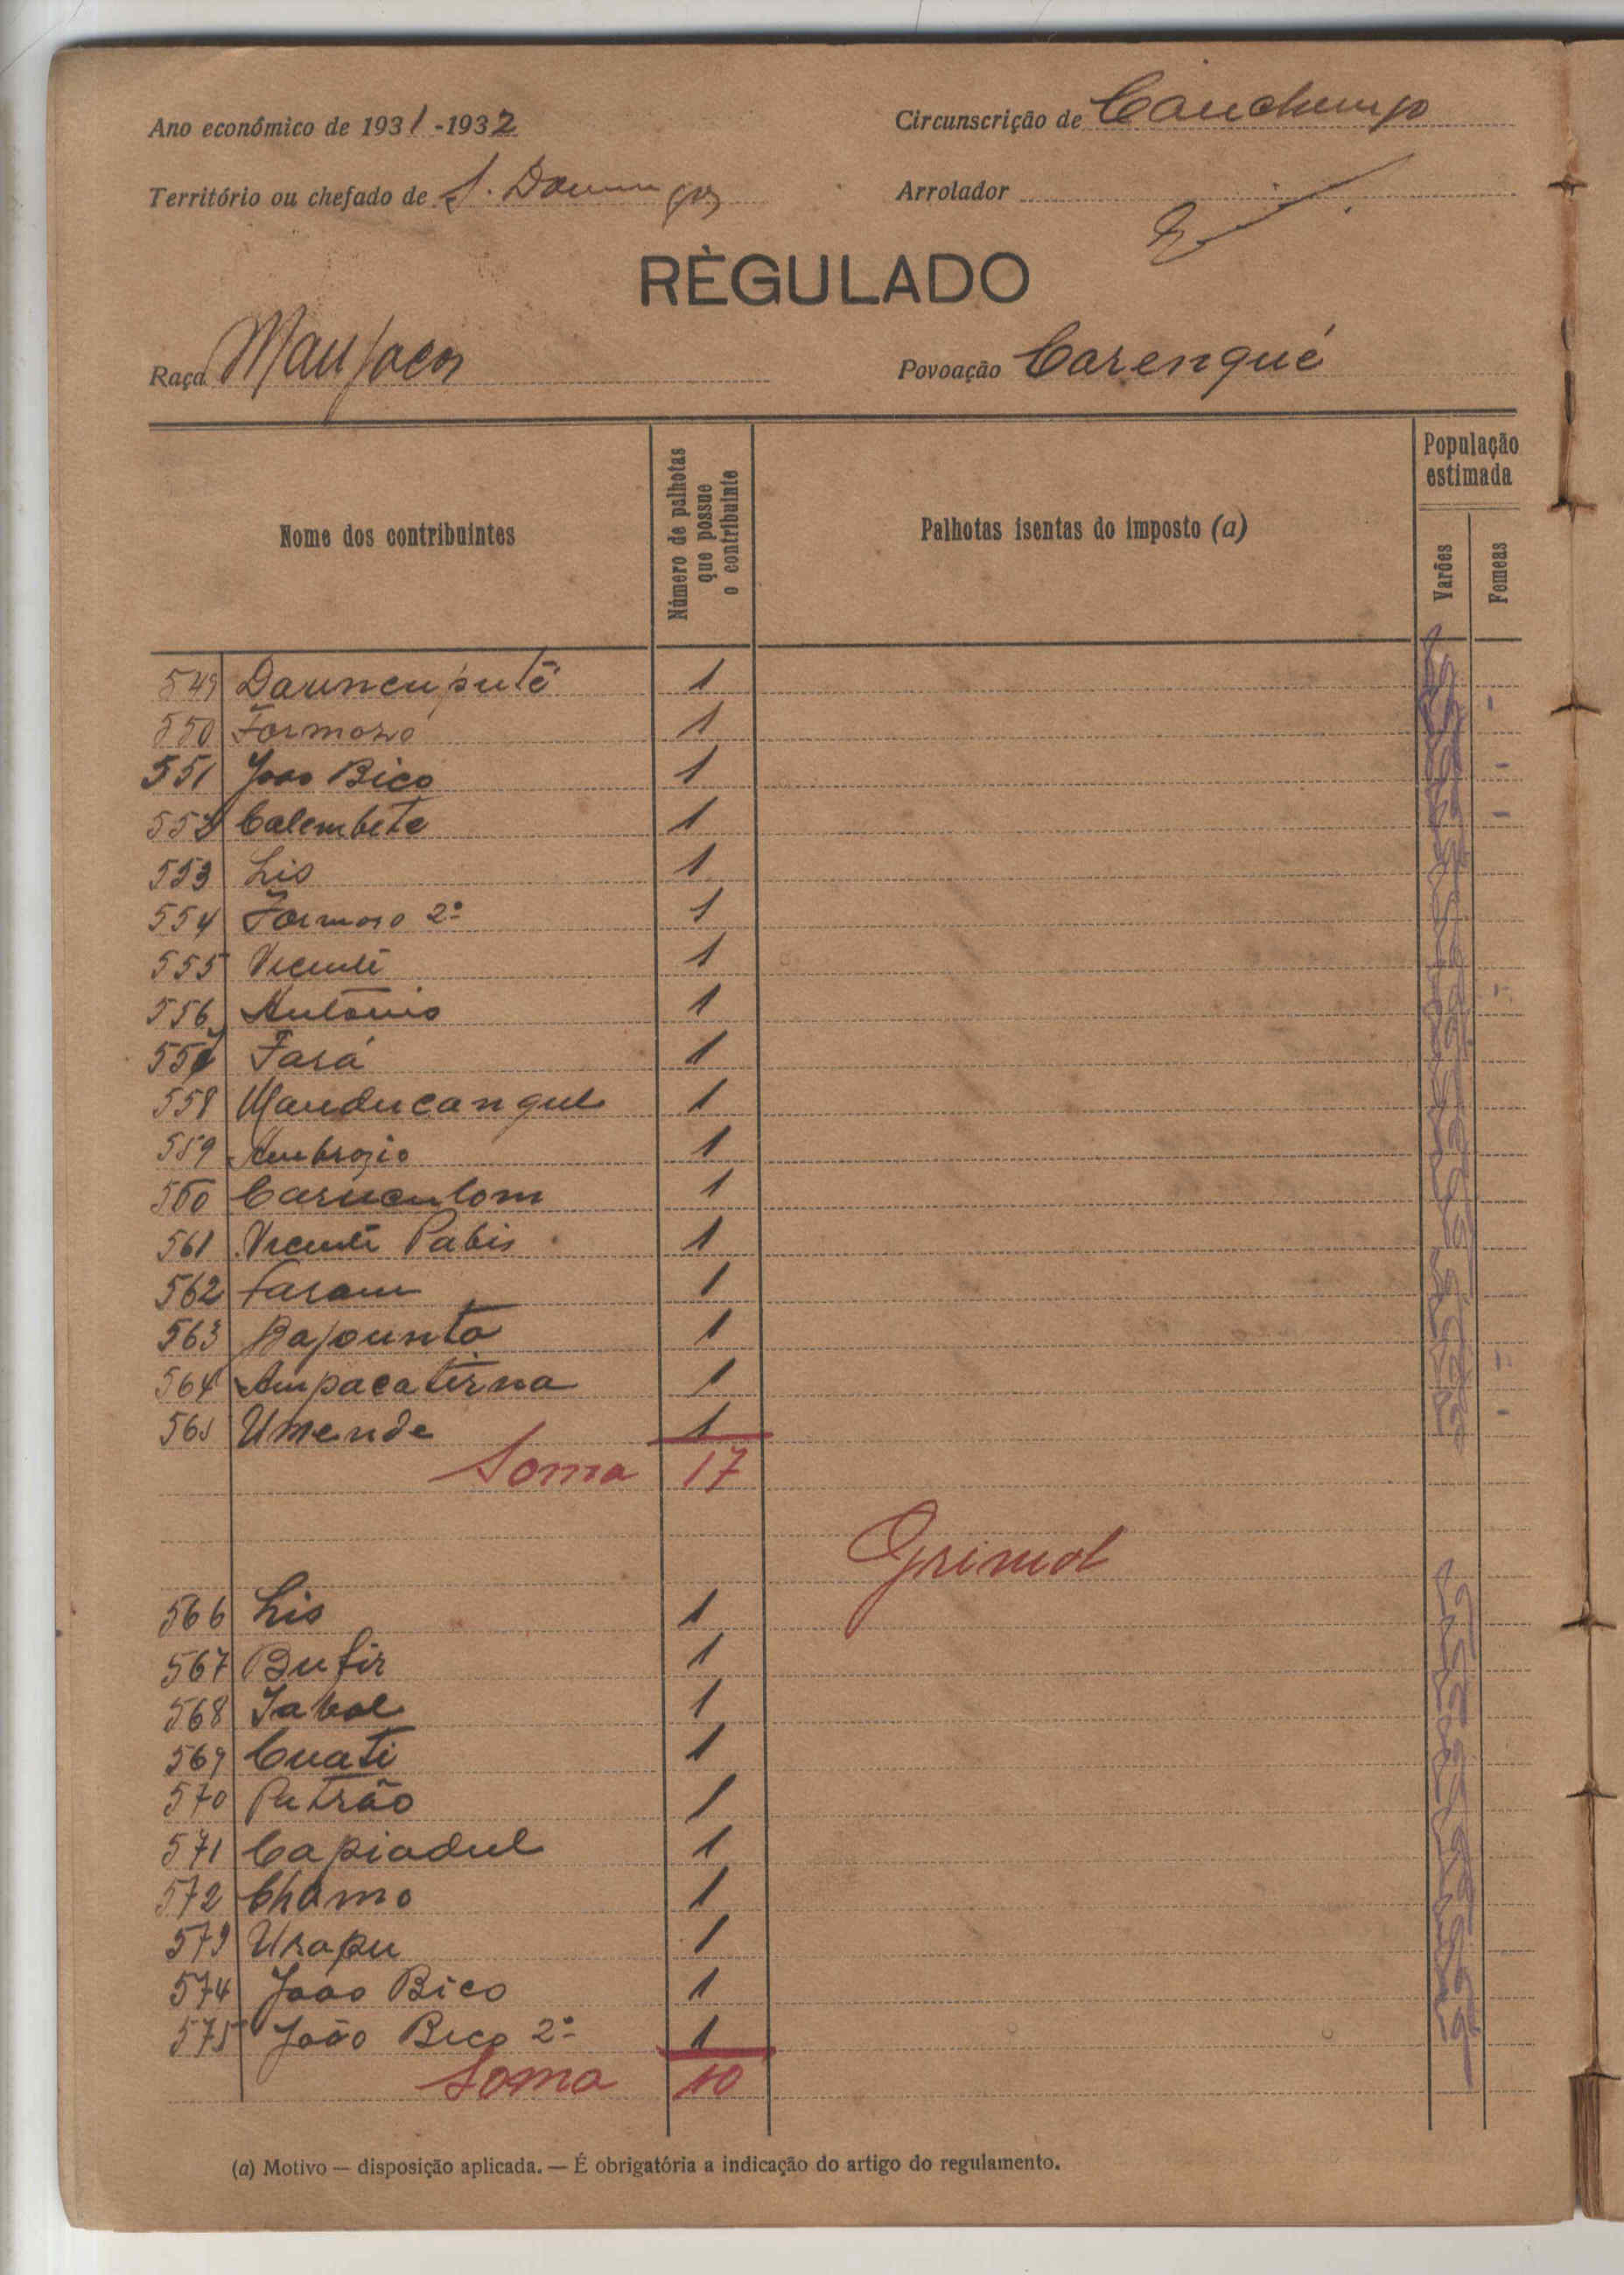 Ano económico de 1931-1932
Circunscrição de Canchungo
Território ou chefado de S. Domingos
Arrolador
RÈGULADO
Raça Manjacos
Povoação Carenqué
Nome dos contribuintes
Número de palhotas que possue o contribuinte
Palhotas isentas do imposto (a)
População estimada
Varões
Femeas
549 1
550 Formozo 1
551 João Bico 1
552 Calembete 1
553 Lis 1
554 Formoso 2º 1
555 Vicente 1
556 António 1
557 Fará 1
558 Manducangul 1
559 Ambrozio 1
560 1
561 Vicente Pabis 1
562 Faram 1
563 Bajounta 1
564 Ampacaterna 1
565 Umende 1
Soma 17
Grimol
566 Lis 1
567 Bufir 1
568 1
569 Cuati 1
570 Putrão 1
571 Capiadul 1
572 Chamo 1
573 Urapu 1
574 João Bico 1
575 João Bico 2º 1
Soma 10
(a) Motivo — disposição aplicada. — É obrigatória a indicação do artigo do regulamento.